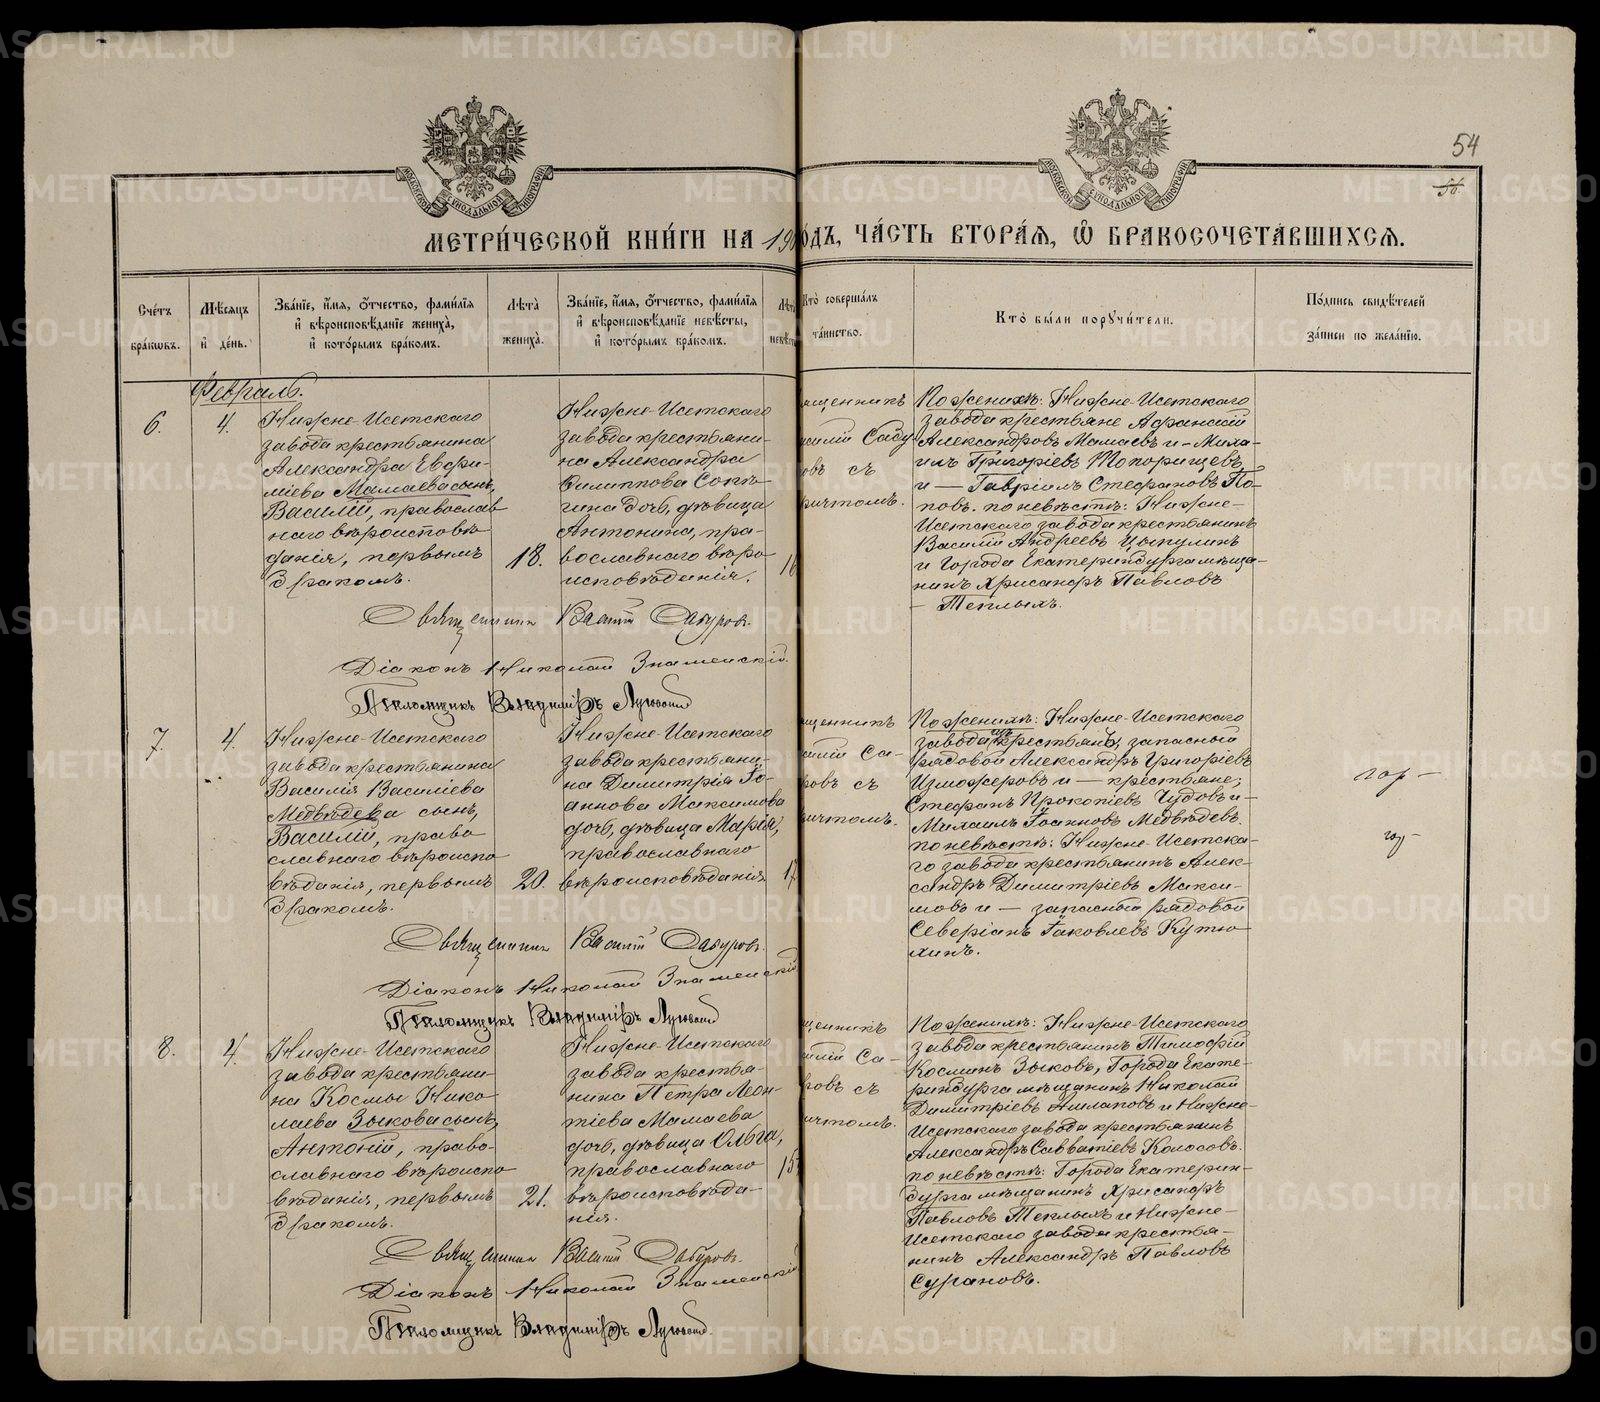 METRIKI.GASO-URAL.RU
МОСКОВСКОЙ СѴНОДАЛЬНОЙ ТИПОГРАФІИ
МОСКОВСКОЙ СѴНОДАЛЬНОЙ ТИПОГРАФІИ
54
56.
МЕТРИ́ЧЕСКОЙ КНИ́ГИ НА 190
ОДЪ, ЧА́СТЬ ВТОРА́Я, Ѡ҆ БРАКОСОЧЕТА́ВШИХСѦ.
Сче́тъ
бра́кѡвъ.
Мѣ́сѧцъ
и҆ де́нь.
Зва́нїе, и҆́мѧ, ѻ҆́тчество, фами́лїѧ
и҆ вѣроисповѣ́данїе жениха̀,
и҆ кото́рымъ бра́комъ.
Лѣ́та
жениха̀.
Зва́нїе, и҆́мѧ, ѻ҆́тчество, фами́лїѧ
и҆ вѣроисповѣ́данїе невѣ́сты,
и҆ кото́рымъ бра́комъ.
Лѣ́та
невѣ́с
Кто̀ соверша́лъ
та́инство.
Кто̀ бы́ли порꙋчи́тели.
По́дпись свидѣ́телей
за́писи по жела́нїю.
Февраль.
6.
4.
Нижне-Исетскаго
завода крестьянина
Александра Евфи-
міева Мамаева сынъ,
Василій, православ
наго вѣроисповѣ
данія, первымъ
бракомъ.
18.
Нижне-Исетскаго
завода крестьяни-
на Александра
Филиппова Соню-
гина дочь, дѣвица
Антонина, пра-
вославнаго вѣро
исповѣданія.
16
щенникъ
силій Сабу
овъ съ
ричтомъ.
По женихѣ: Нижне-Исетскаго
завода крестьяне Афанасій
Александровъ Мамаевъ и - Миха-
илъ Григоріевъ Топорищевъ
и — Гавріилъ Стефановъ По-
повъ. по невѣстѣ: Нижне-
Исетскаго завода крестьянинъ
Василій Андреевъ Цыпулинъ
и Города Екатеринбурга мѣща-
нинъ Хрисанфъ Павловъ
- Теплыхъ.
Священникъ Василій Сабуровъ.
Діаконъ Николай Знаменскій.
Псаломщикъ Владиміръ
7.
4.
Нижне-Исетскаго
завода крестьянина
Василія Василіева
Медвѣдева сынъ,
Василій, право
славнаго вѣроиспо
вѣданія, первымъ
бракомъ.
20.
Нижне-Исетскаго
завода крестьяни-
на Димитрія Іо-
аннова Максимова
дочь, дѣвица Марія,
православнаго
вѣроисповѣданія
17
щенникъ
илій Са-
ровъ съ
ичтомъ.
По женихѣ: Нижне-Исетскаго
завода изъ крестьянъ, запасный
рядовой Александръ Григоріевъ
Изможеровъ и — крестьяне;
Стефанъ Прокопіевъ Чудовъ и -
Михаилъ Іоанновъ Медвѣдевъ.
по невѣстѣ: Нижне-Исетска-
го завода крестьянинъ Алек-
сандръ Димитріевъ Макси-
мовъ и — запасный рядовой
Северіанъ Іаковлевъ Кутю-
хинъ.
Священникъ Василій Сабуровъ.
Діаконъ Николай Знаменскій
Псаломщикъ Владиміръ
8.
4.
Нижне-Исетскаго
завода крестьяни-
на Космы Нико
лаева Зыкова сынъ,
Антоній, право-
славнаго вѣроиспо
вѣданія, первымъ
бракомъ.
21.
Нижне-Исетскаго
завода крестья-
нина Петра Леон-
тіева Мамаева
дочь, дѣвица Ольга,
православнаго
вѣроисповѣда-
нія.
15
щенникъ
илій Са-
ровъ съ
ичтомъ.
По женихѣ: Нижне-Исетскаго
завода крестьянинъ Тимофей
Косминъ Зыковъ, Города Екате-
ринбурга мѣщанинъ Николай
Димитріевъ Ашлаповъ и Нижне-
Исетскаго завода крестьянинъ
Александръ Савватіевъ Колосовъ.
по невѣстѣ: Города Екатерин-
бурга мѣщанинъ Хрисанфъ
Павловъ Теплыхъ и Нижне-
Исетскаго завода крестья-
нинъ Александръ Павловъ
Сурановъ.
Священникъ Василій Сабуровъ.
Діаконъ Николай Знаменскій
Псаломщикъ Владиміръ